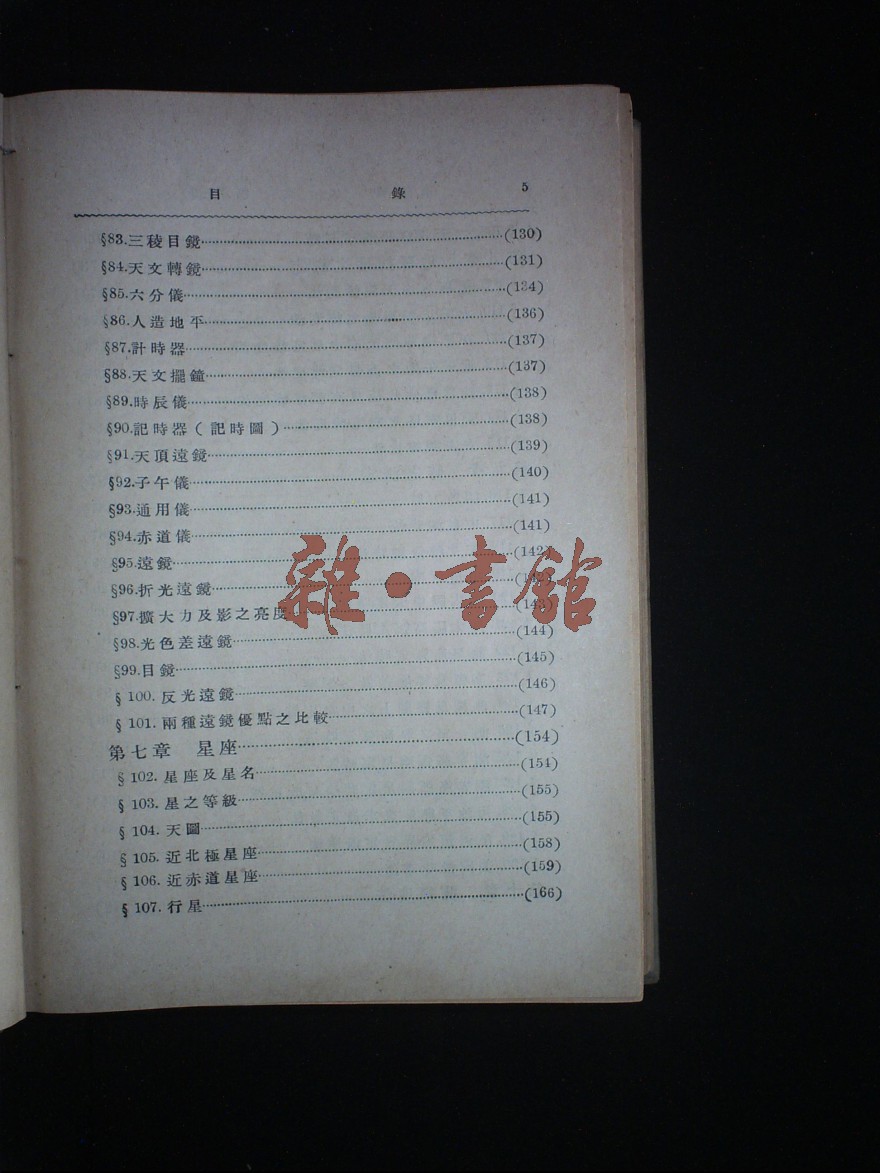 目 錄 5
§83.三稜目鏡……(130)
§84.天文轉鏡……(131)
§85.六分儀……(134)
§86.人造地平……(136)
§87.計時器……(137)
§88.天文擺鐘……(137)
§89.時辰儀……(138)
§90.記時器(記時圖)……(138)
§91.天頂遠鏡……(139)
§92.子午儀……(140)
§93.通用儀……(141)
§94.赤道儀……(141)
§95.遠鏡……(142)
§96.折光遠鏡……
§97.擴大力及影之亮度……(143)
§98.光色差遠鏡……(144)
§99.目鏡……(145)
§100.反光遠鏡……(146)
§101.兩種遠鏡優點之比較……(147)
第七章 星座……(154)
§102.星座及星名……(154)
§103.星之等級……(155)
§104.天圖……(155)
§105.近北極星座……(158)
§106.近赤道星座……(159)
§107.行星……(166)
雜·書館